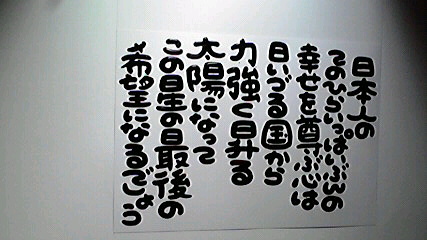 日本人の
てのひらいっぱいぶんの
幸せを尊ぶ心は
日いづる国から
力強く昇る
太陽になって
この星の最後の
希望になるでしょう